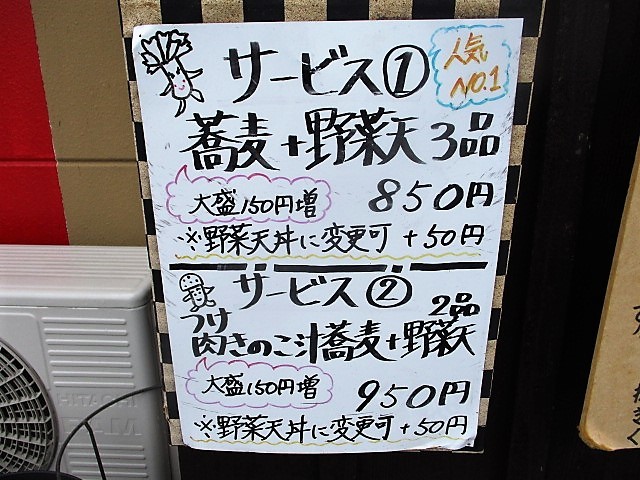 サービス①
人気
NO.1
蕎麦+野菜天3品
大盛150円増
850円
※野菜天丼に変更可 +50円
サービス②
つけ
肉きのこ汁蕎麦+野菜天2品
大盛150円増
950円
※野菜天丼に変更可 +50円
HITACHI